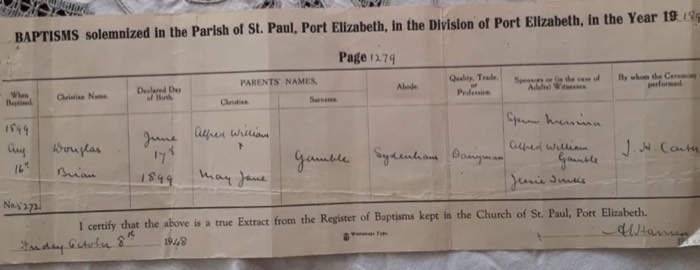 BAPTISMS solemnized in the Parish of St. Paul, Port Elizabeth, in the Division of Port Elizabeth, in the Year 19
Page 1279
When Baptised.
Christian Name.
Declared Day of Birth.
PARENTS NAMES.
Christian.
Surname.
Abode.
Quality, Trade, or Profession.
Sponsors or (in the case of Adults) Witnesses.
By whom the Ceremony performed.
1899
Aug
16th
Douglas
Brian
June
17th
1899
Alfred William
&
May Jane
Gamble
Sydenham
Alfred William
Gamble
Jessie
J. H.
No. 5272.
I certify that the above is a true Extract from the Register of Baptisms kept in the Church of St. Paul, Port Elizabeth.
October 8th 1948